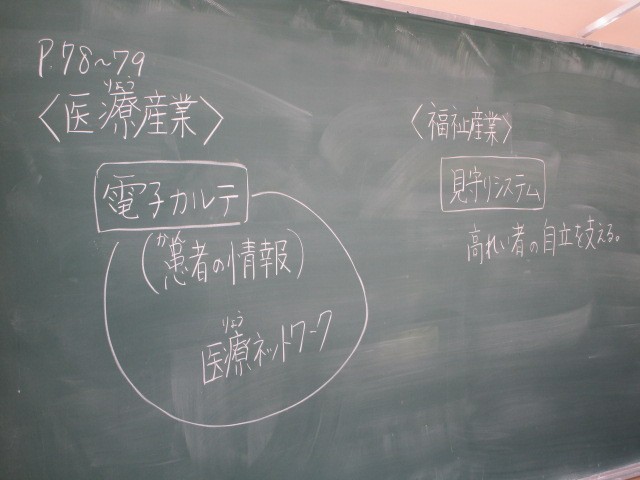 P.78～79
〈医療産業〉
りょう
電子カルテ
(患者の情報)
かん
りょう
医療ネットワーク
〈福祉産業〉
見守りシステム
高れい者の自立を支える。